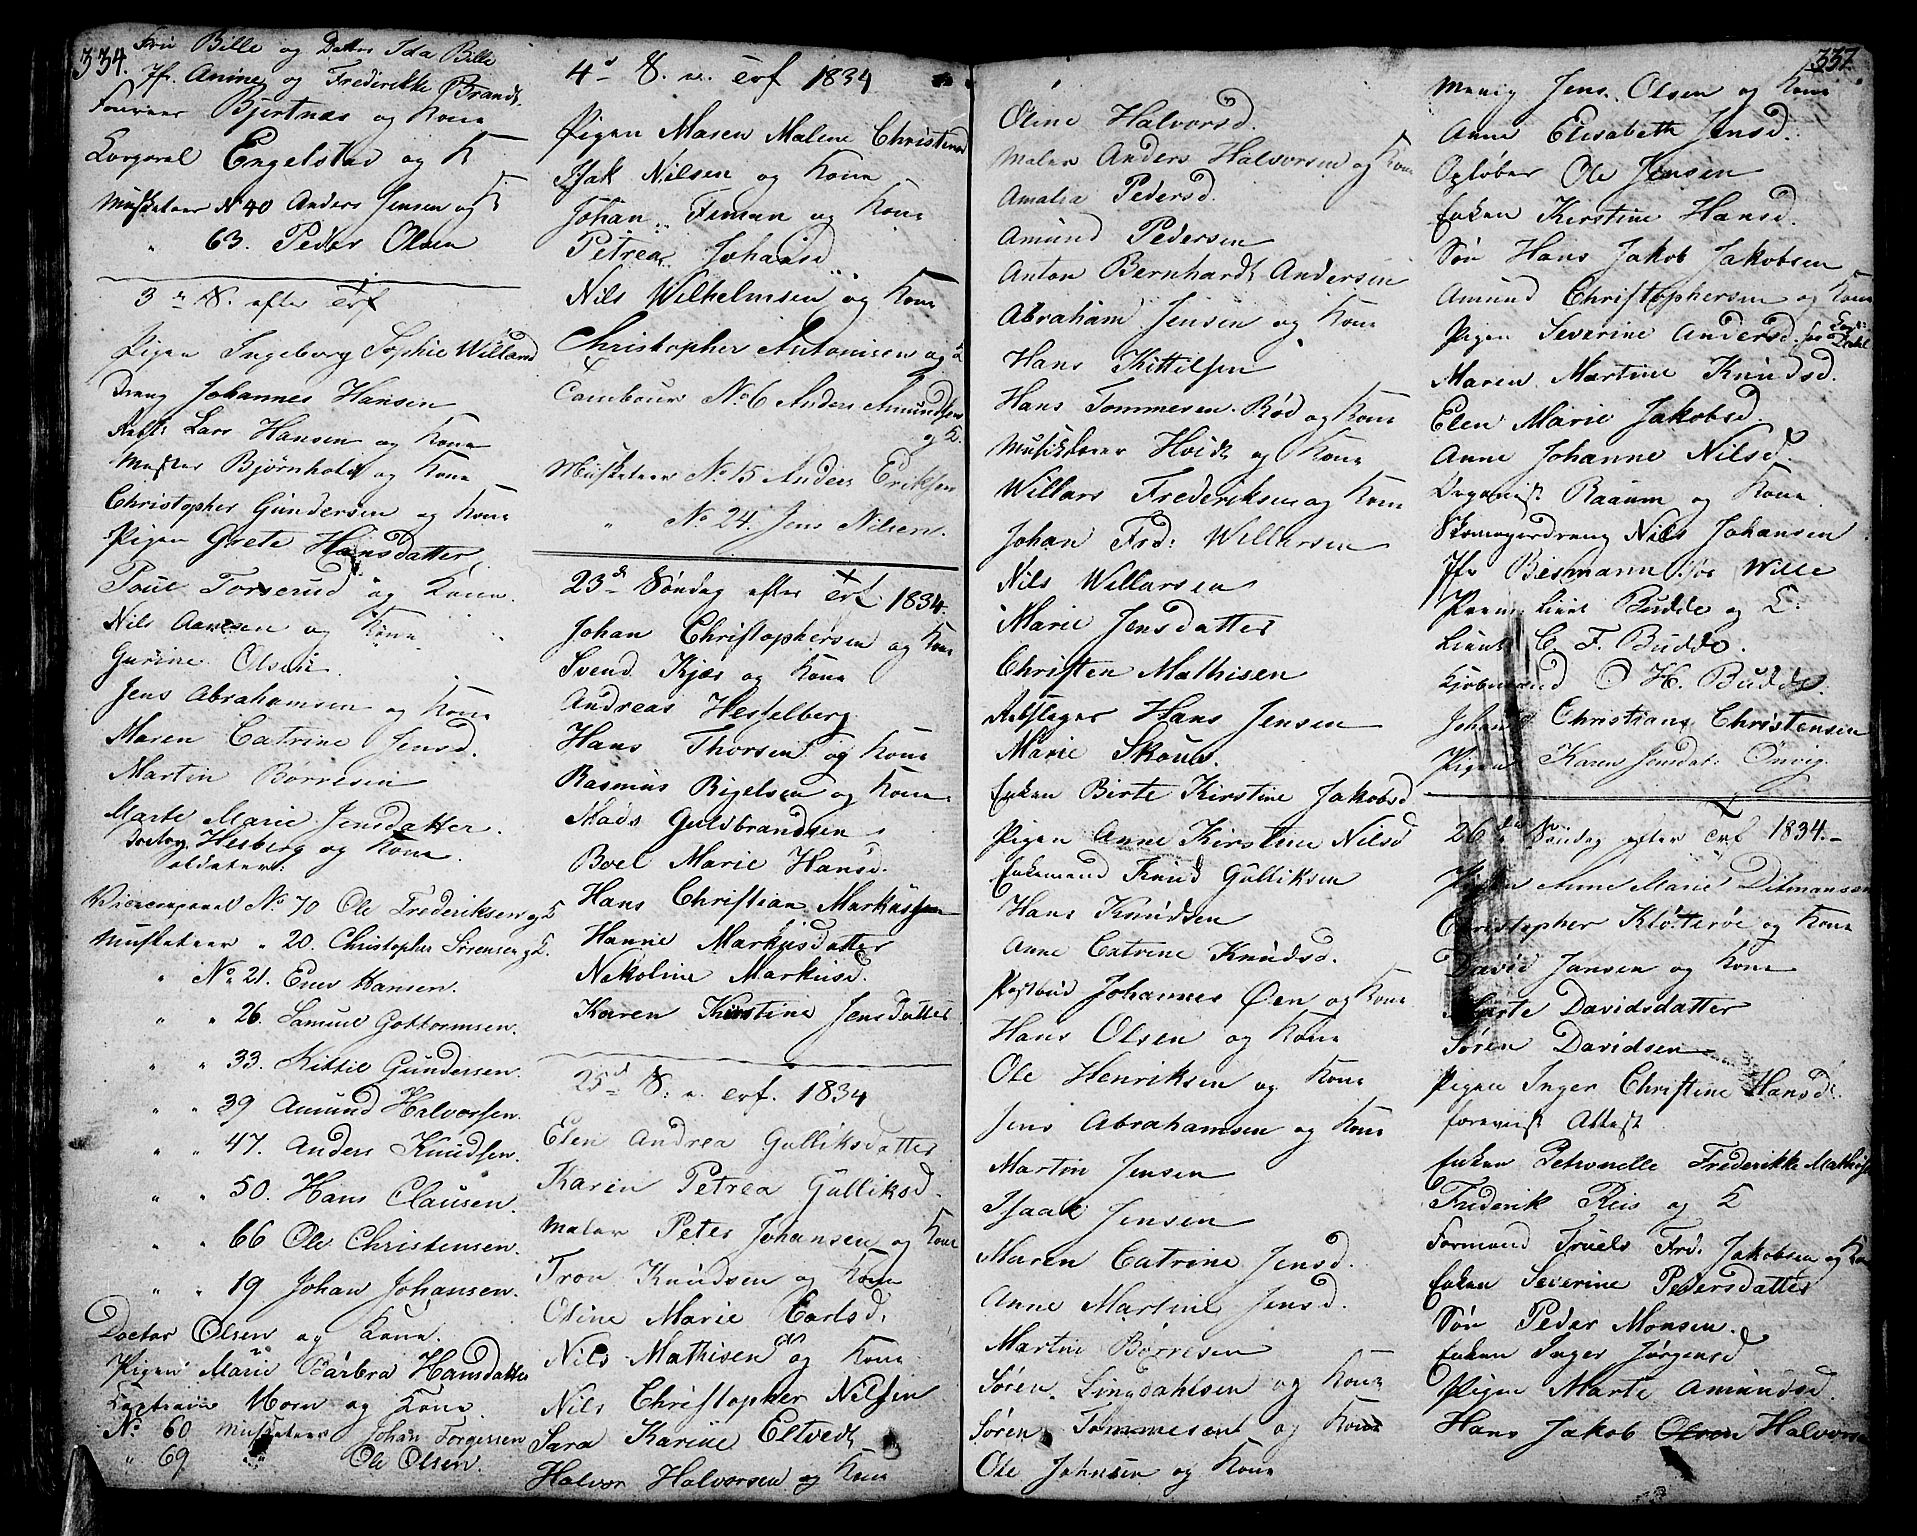 334.
Fru Bille og Datter Ida Bille
Jfr. Anine og Frederikke Brandt.
Foureer Bjertnæs og Kone
Corporal Engelstad og K
Musketeer No 40 Anders Jensen og K
" 63. Peder Olsen
3die S. efter Trf
Pigen Ingeborg Sophie Willand
Dreng Johannes Hansen
Lars Hansen og Kone
Mester Bjørnholdt og Kone
Christopher Gundersen og Kone
Pigen Grete Hansdatter
Poul Torserud og Kone.
Nils Aanesen og Kone
Gurine Olsen
Jens Abrahamsen og Kone
Maren Catrine Jensd.
Martin Børresen
Marte Marie Jensdatter.
Doctor Hesberg og Kone.
Soldater:
Vicecorporal No 70 Ole Frederiksen og K
Musketeer " 20. Christopher Sørensen og K.
" No 21. Enes Hansen.
" " 26. Samuel Gottormsen.
" " 33. Kittil Gundersen.
" " 39 Amund Halvorsen.
" " 47. Anders Knudsen.
" " 50. Hans Clausen.
" " 66 Ole Christensen.
" " 19 Johan Johansen.
Doctor Olsen og Kone.
Pigen Marie Barbra Hansdatter
Kaptain Horn og Kone.
No. 60 Musketeer Johan Torgersen
" 69 " Ole Olsen.
4de S. e. Trf 1834
Pigen Maren Malene Christensd
Isak Nilsen og Kone
Johan Timan og Kone
Petrea Johansd
Nils Wilhelmsen og Kone
Christopher Antonisen og K
Tambour No 6 Anders Amundsen
og K.
Musketeer No 15 Anders Eriksen
" No 24. Jens Nilsen.
23de Søndag efter Trf. 1834.
Johan Christophersen og Kone
Svend Kjær og Kone
Andreas Hesselberg
Hans Thorsen og Kone
Rasmus Bigelsen og Kone
Mads Gulbrandsen
Boel Marie Hansd.
Hans Christian Markussen
Hanne Markusdatter
Nekoline Markusd.
Karen Kirstine Jensdatter
25de S. e. Trf. 1834
Elen Andrea Gulliksdatter
Karen Petrea Gulliksd.
Maler Peter Johansen og Kone
Tron Knudsen og Kone
Oline Marie Carlsd.
Nils Mathisen og Kone
Nils Christopher Nilsen
Sara Karine Eltvedt
Halvor Halvorsen og Kone
337.
Oline Halvorsd.
Maler Anders Halvorsen og Kone
Amalia Pedersd.
Amund Pedersen
Anton Bernhardt Andersen
Abraham Jensen og Kone
Hans Kittilsen
Hans Tommesen Rød og Kone
Musikdeer Hvidt og Kone
Willars Frederiksen og Kone
Johan Frd: Willarsen
Nils Willarsen
Marie Jensdatter
Christen Mathisen
Hans Jensen
Marie Skoue.
Enken Birte Kirstine Jakobsd
Pigen Anne Kirstine Nilsd
Enkemand Knud Gulliksen
Hans Knudsen
Anne Catrine Knudsd.
Postbud Johannes Øen og Kone
Hans Olsen og Kone
Ole Henriksen og Kone
Jens Abrahamsen og Kone
Martin Jensen
Isaak Jensen
Maren Catrine Jensd.
Anne Martine Jensd.
Martin Børresen
Søren Lingdahlsen og Kone
Søren Tommesen og Kone
Ole Johnsen og Kone
Menig Jens Olsen og Kone
Anne Elisabeth Jensd.
Opløber Ole Jensen
Enken Kirstine Hansd.
Søn Hans Jakob Jakobsen
Amund Christophersen og Kone
Pigen Severine Andersd. hos
Maren Martine Knudsd.
Elen Marie Jakobsd.
Anne Johanne Nilsd.
Organist Raaum og Kone
Skomagerdreng Nils Johansen
Jfr Biesmann hos Wille
Prem: Lieut Budde og K:
Lieut C. F. Budde.
Kjøbmand O H. Budde.
Johan Christian Christensen
Pigen Karen Jensdat: Onvig.
26de Søndag efter Trf 1834.
Pigen Anne Marie Ditmansen
Christopher Kløtterøe og Kone
David Jansen og Kone
Marte Davidsdatter
Søren Davidsen
Pigen Inger Christine Hansd:
foreviist Attest
Enken Petronelle Frederikke Mathis
Frederik Reis og K
Formand Truels Frd. Jakobsen og Kone
Enken Severine Pedersdatter
Søn Peder Monsen.
Enken Inger Jørgensd
Pigen Marte Amundsd.
Hans Jakob Olsen Halvorsen